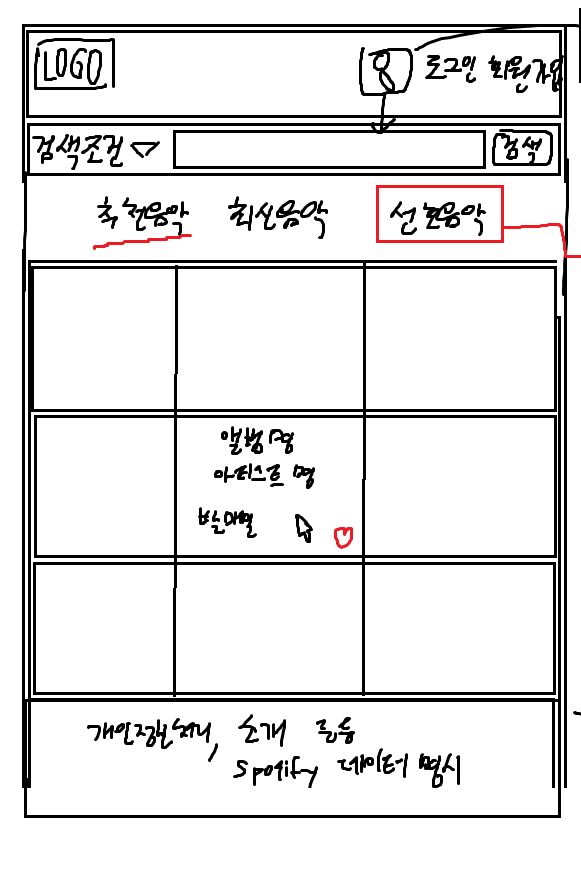 LOGO 로그인 회원가입
검색조건 검색
추천음악 최신음악 선호음악
앨범명
아티스트 명
발매일
개인정보처리, 소개 등등
Spotify 데이터 명시